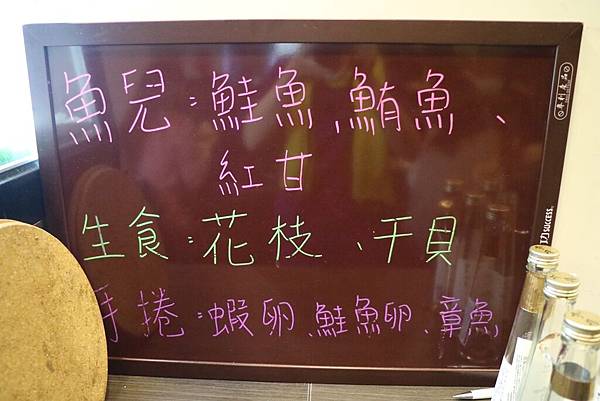 魚兒:鮭魚、鮪魚、
紅甘
生食:花枝、干貝
手捲:蝦卵、鮭魚卵、章魚
專利產品
SUCCESS